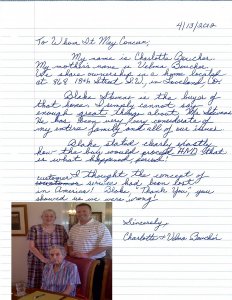 4/13/2012
To Whom It May Concern,
My name is Charlotte Boucher.
My mother's name is Velma Boucher.
We share ownership in a home located
at 868 18th Street S.W., in Loveland, CO.
Blake is the buyer of
that home. I simply cannot say
enough great things about Mr.
He has been very, very considerate of
my entire family and all of our issues.
Blake stated clearly exactly
how the buy would proceed AND that
is what happened, period!
I thought the concept of
customer service had been lost
in America! Blake, Thank You, you
showed us we were wrong!
Sincerely,
Charlotte & Velma Boucher